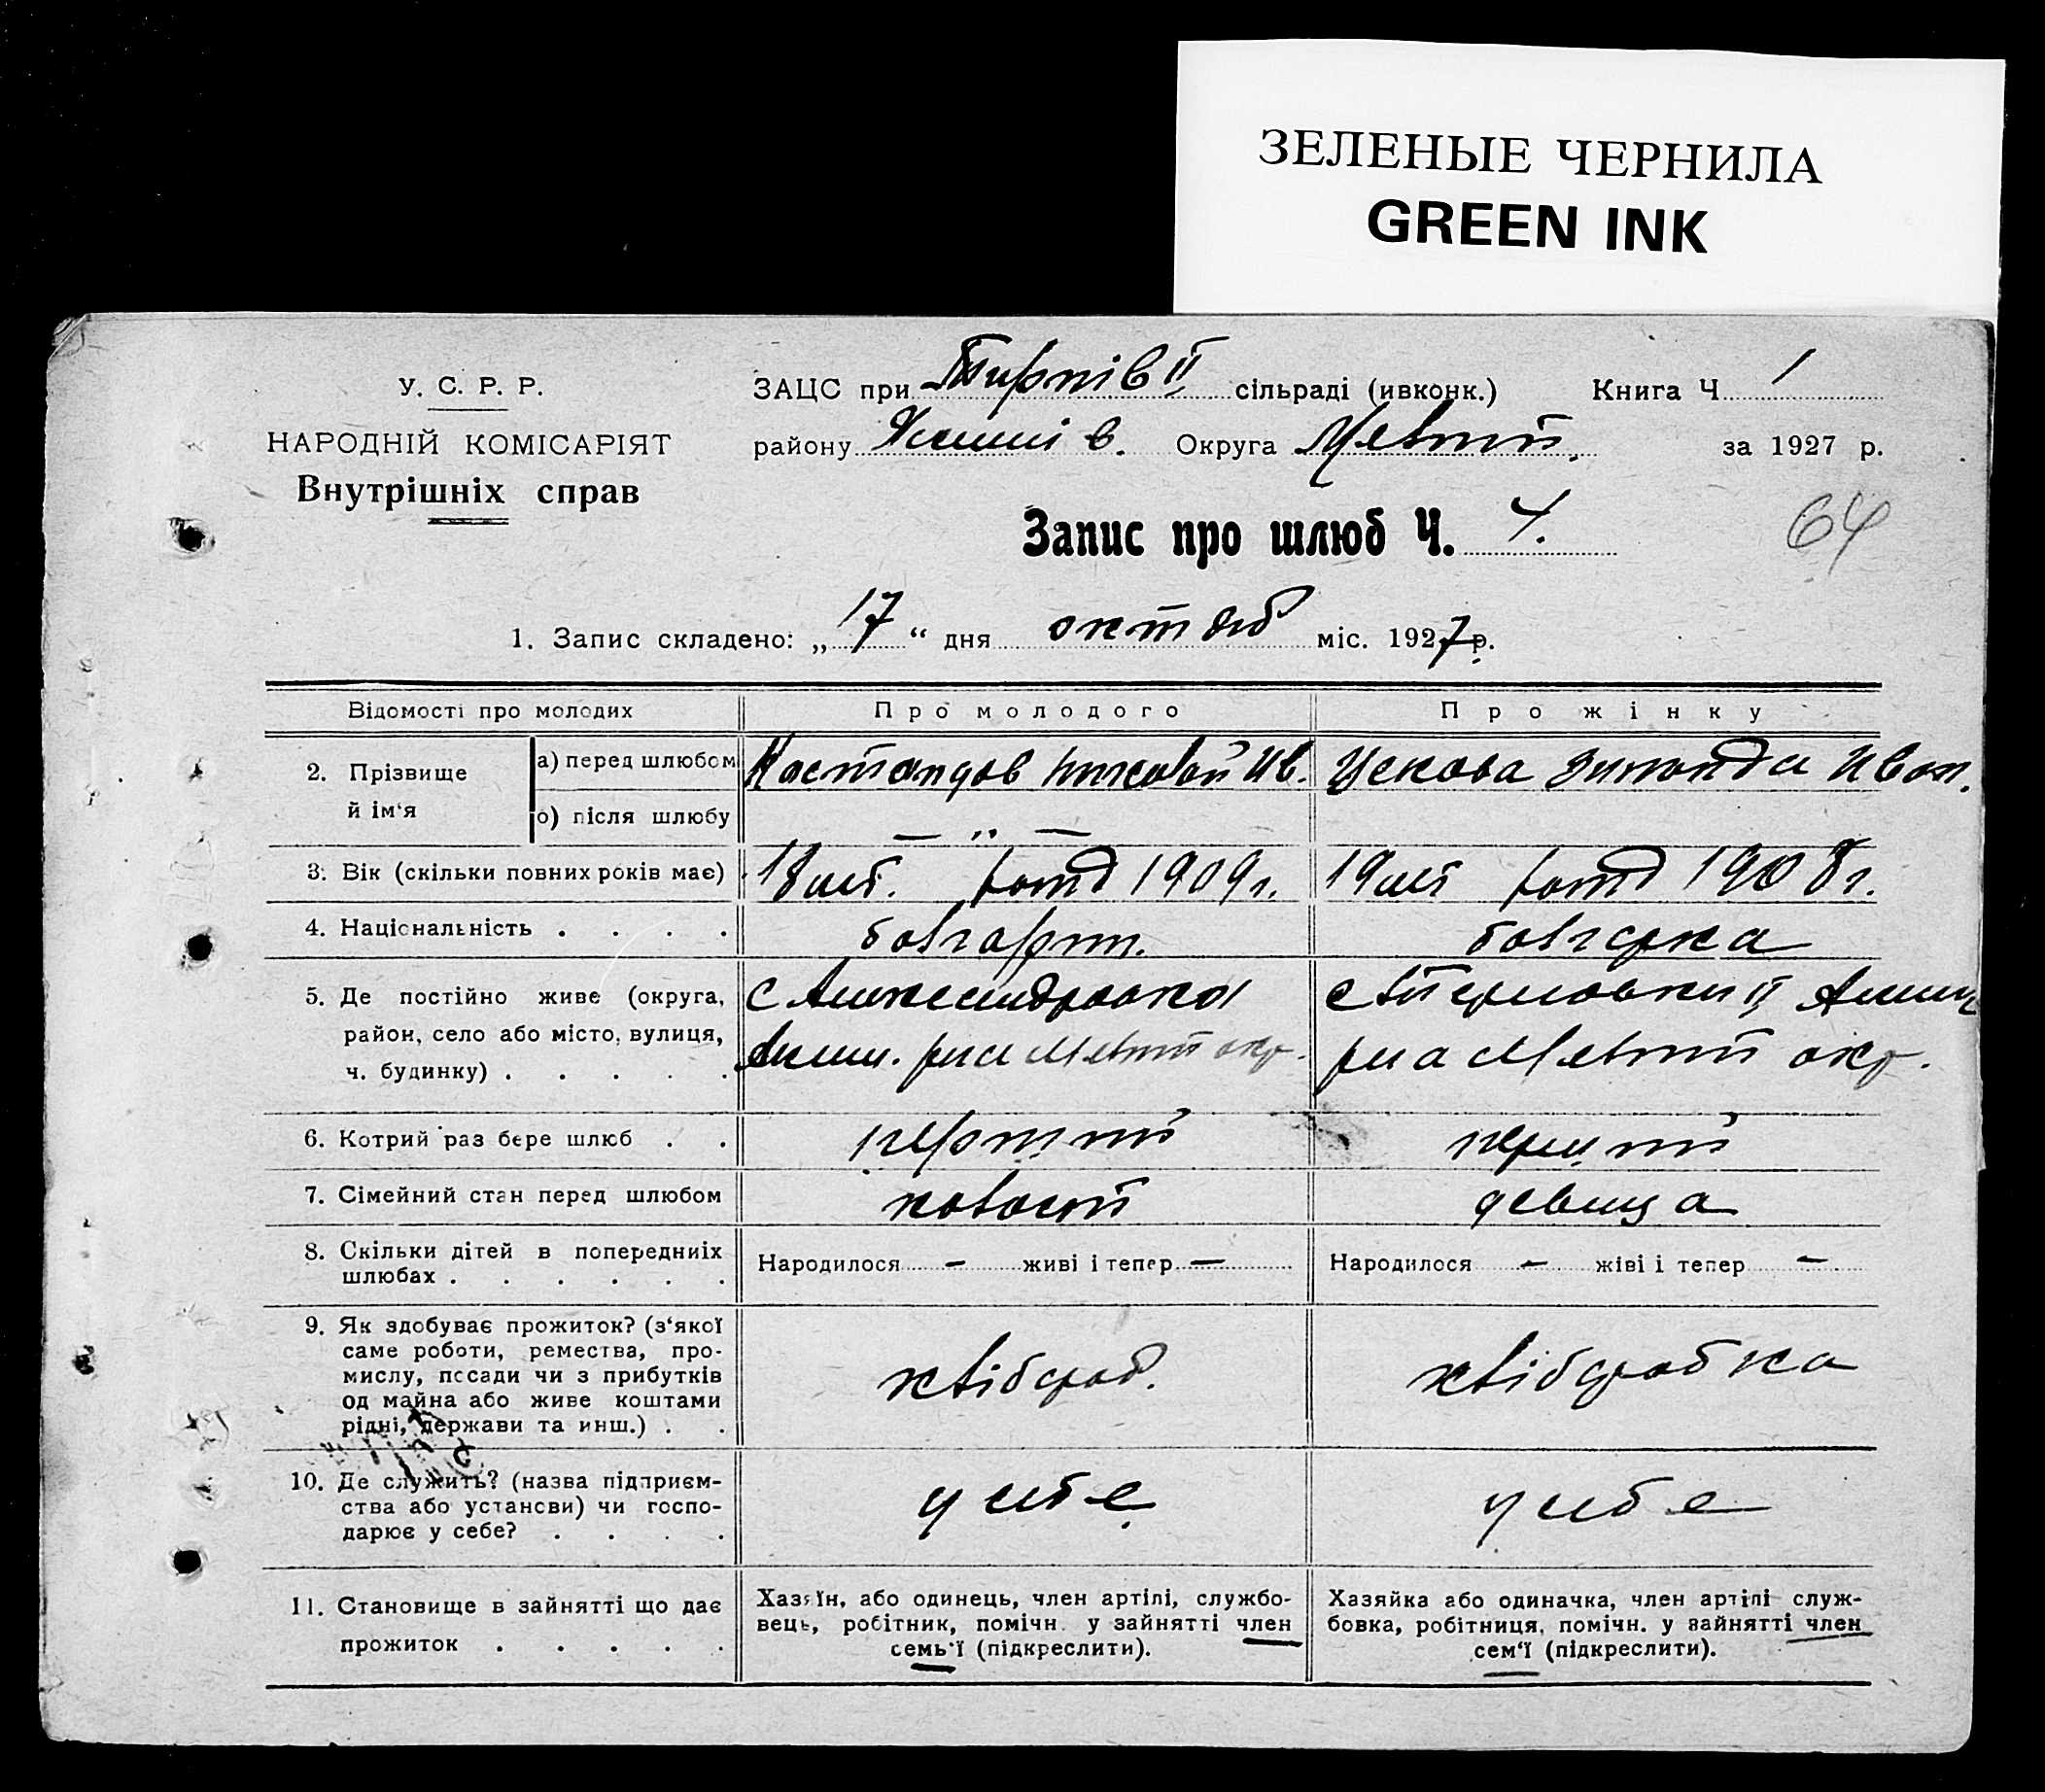 ЗЕЛЕНЫЕ ЧЕРНИЛА
GREEN INK
У. С. Р. Р.
НАРОДНІЙ КОМІСАРІЯТ
Внутрішніх справ
ЗАЦС при II сільраді (ивконк.) Книга Ч 1
району Округа за 1927 р.
Запис про шлюб Ч. 4.
64
1. Запис складено: „ 17 “ дня міс. 1927 р.
Відомості про молодих Про молодого Про жінку
2. Прізвище й ім‘я
а) перед шлюбом Ив. Ускова Иван.
о) після шлюбу — „ —
3. Вік (скільки повних років має) 18 1909 г. 19 1908 г.
4. Національність . . . . болгарин. болгарка
5. Де постійно живе (округа, с Александровка с II
район, село або місто, вулиця, р-на окр. р-на окр.
ч. будинку) . . . . .
6. Котрий раз бере шлюб . . перший перший
7. Сімейний стан перед шлюбом холостий девица
8. Скільки дітей в попередниіх
шлюбах . . . . . .
Народилося — живі і тепер — Народилося — жіві і тепер —
9. Як здобуває прожиток? (з‘якої
саме роботи, ремества, про-
мислу, посади чи з прибутків
од майна або живе коштами
рідні, держави та инш.) . .
хлібороб. хліборобка
10. Де служить? (назва підприєм-
ства або установи) чи госпо-
дарює у себе? . . . .
у себе у себе
11. Становище в зайнятті що дає
прожиток . . . . .
Хазяїн, або одинець, член артілі, службо-
вець, робітник, помічн. у зайнятті член
семь‘ї (підкреслити).
Хазяйка або одиначка, член артілі служ-
бовка, робітниця, помічн. у зайнятті член
сем‘ї (підкреслити).